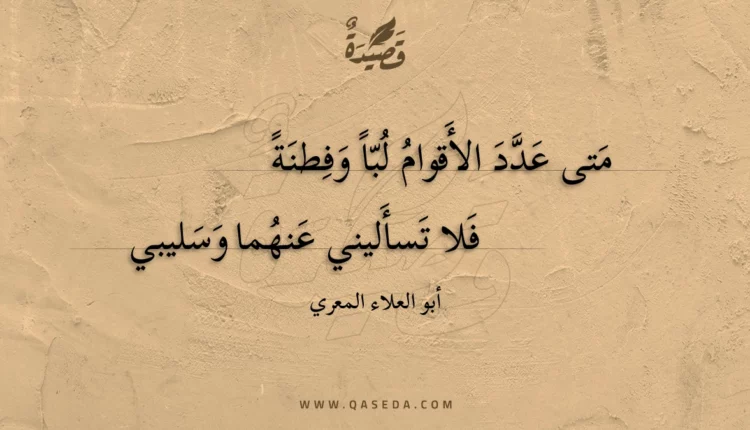 قَصِيدَةٌ
مَتى عَدَّدَ الأَقوامُ لُبّاً وَفِطنَةً
فَلا تَسأَليني عَنهُما وَسَليبي
أبو العلاء المعري
WWW.QASEDA.COM